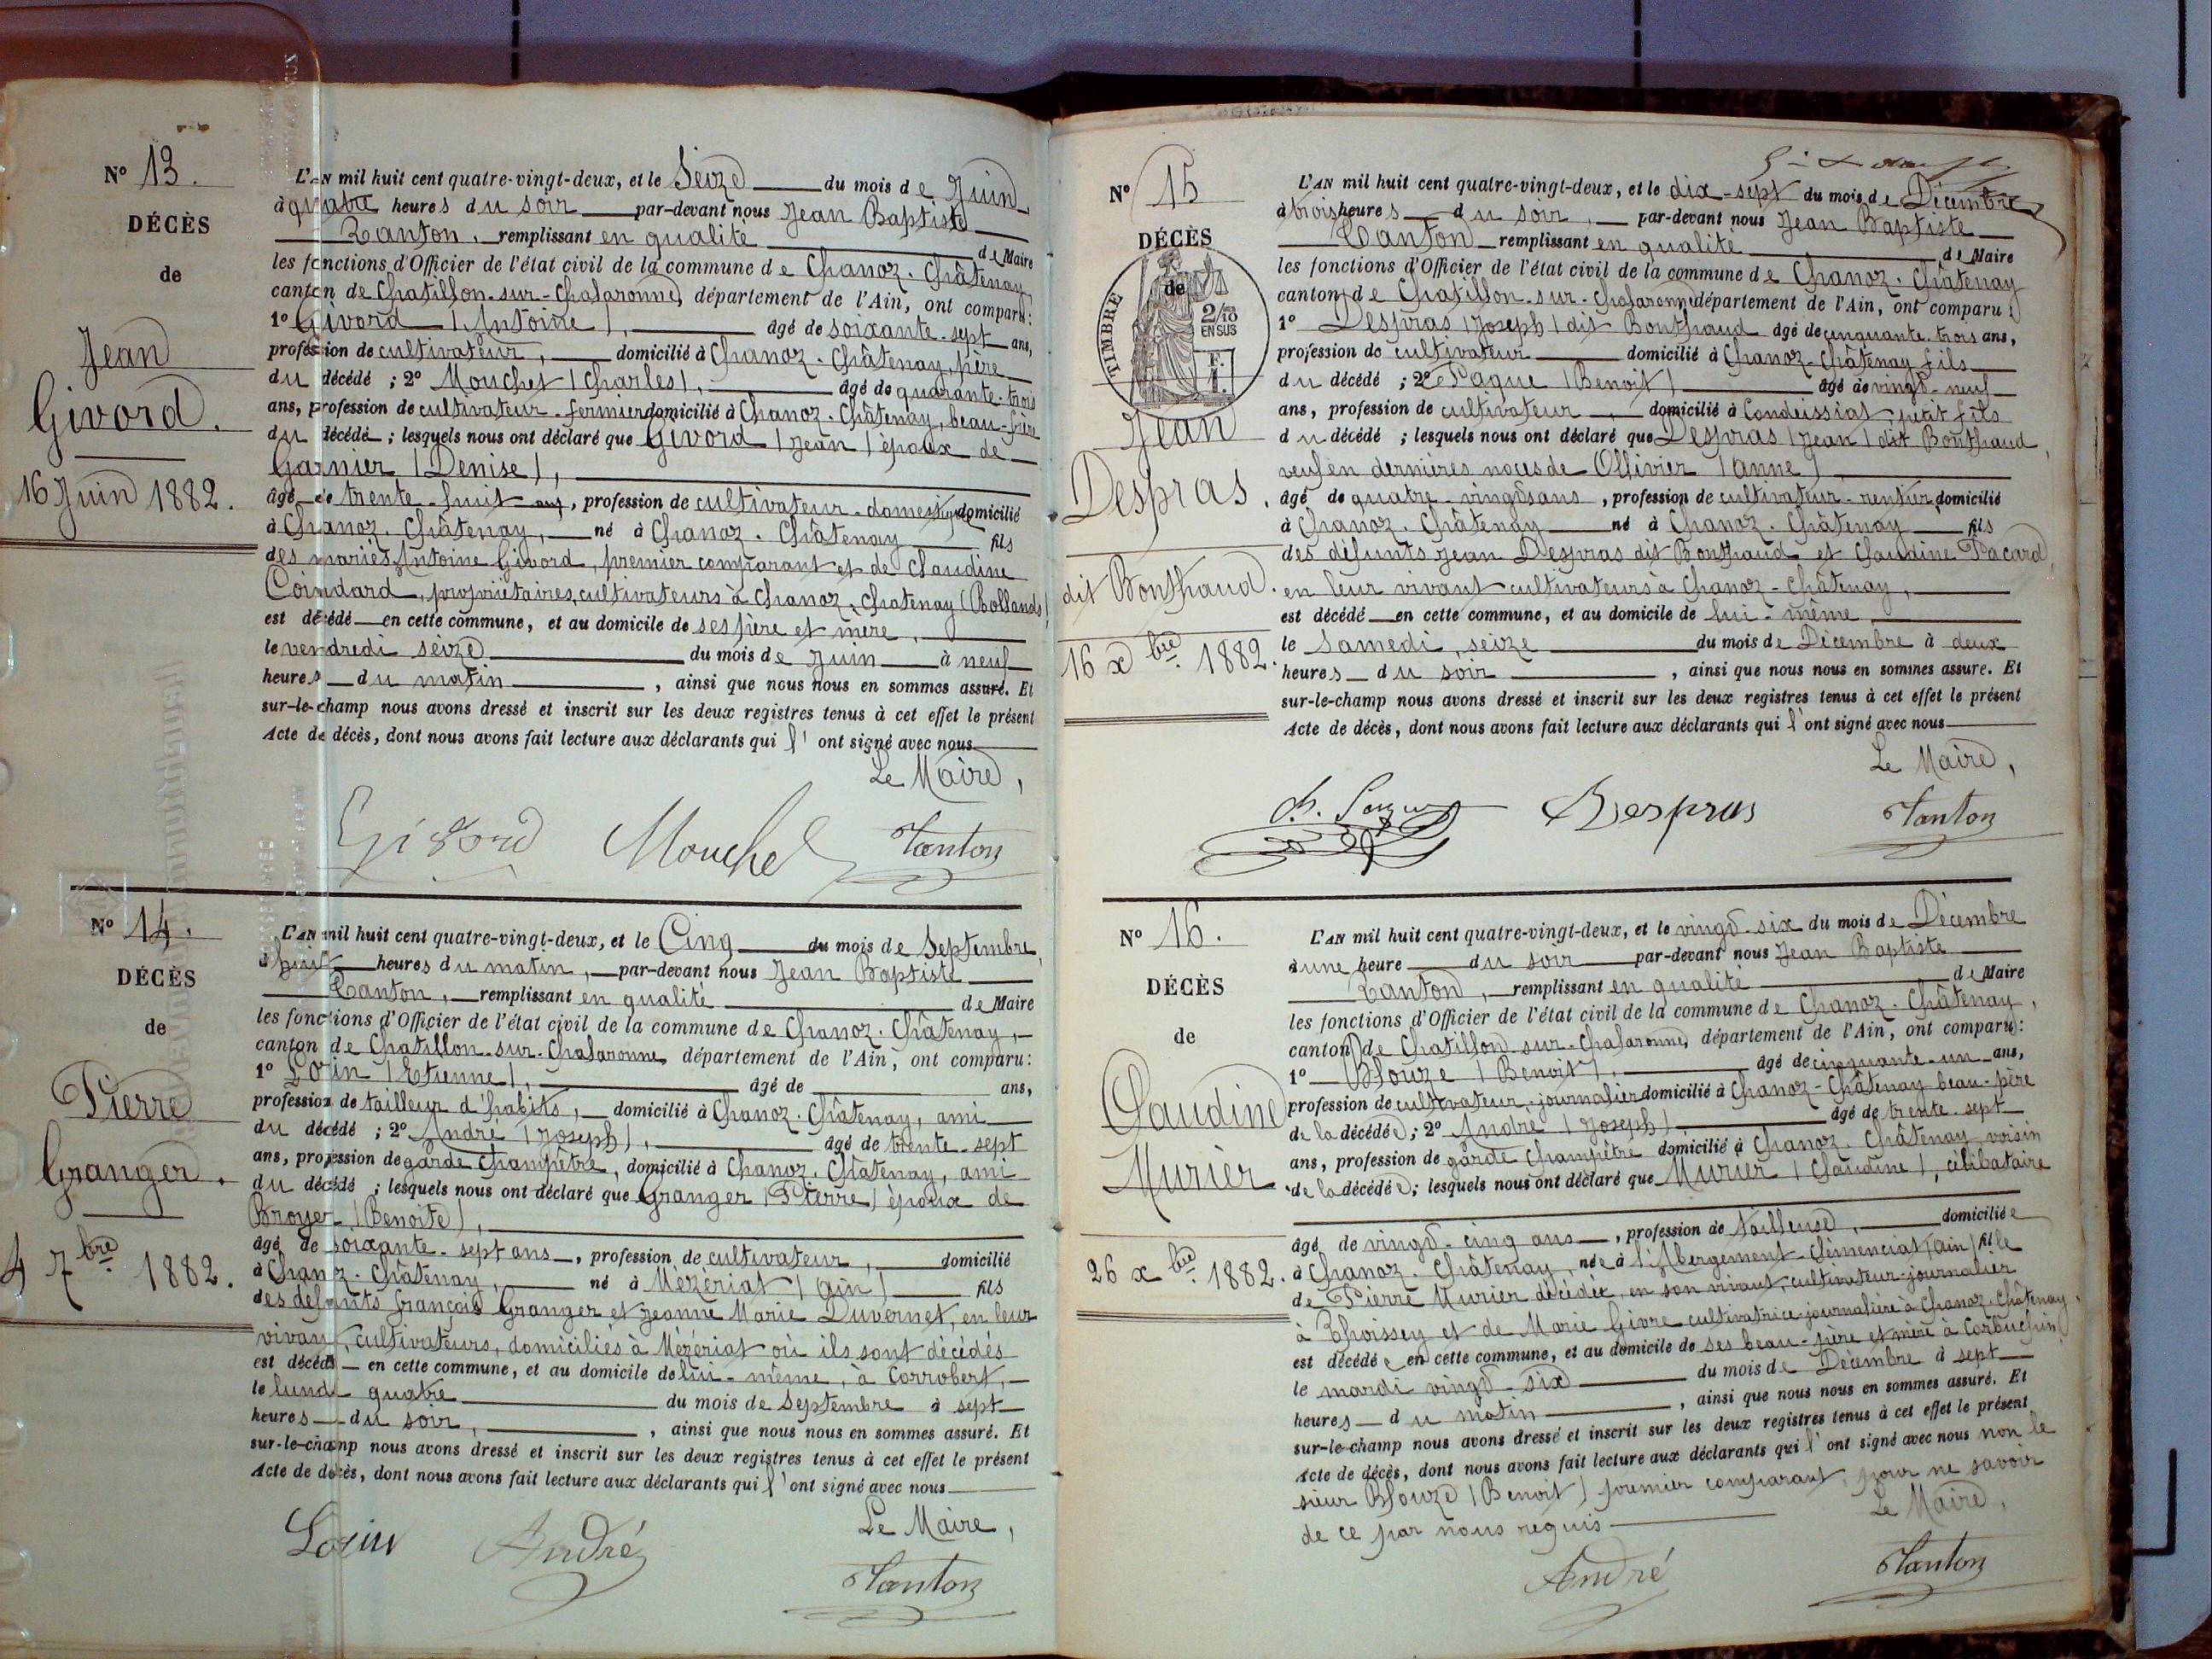 N° 13.
DÉCÈS
de
Jean
Givord.
16 Juin 1882.
L'AN mil huit cent quatre-vingt-deux, et le Seize du mois de Juin
à quatre heures du soir par-devant nous Jean Baptiste
Tanton, remplissant en qualité de Maire
les fonctions d'Officier de l'état civil de la commune de Chanoz-Châtenay,
canton de Chatillon-sur-Chalaronne, département de l'Ain, ont comparu:
1° Givord (Antoine), âgé de soixante-sept ans,
profession de cultivateur, domicilié à Chanoz-Châtenay, père
du décédé ; 2° Mouchet (Charles), âgé de quarante-trois
ans, profession de cultivateur-fermier domicilié à Chanoz-Châtenay, beau-frère
du décédé ; lesquels nous ont déclaré que Givord (Jean) époux de
Garnier (Denise),
âgé de trente-huit ans, profession de cultivateur-domestique domicilié
à Chanoz-Châtenay, né à Chanoz-Châtenay fils
des mariés Antoine Givord, premier comparant et de Claudine
Coindard, propriétaires, cultivateurs à Chanoz-Chatenay (Bollands)
est décédé en cette commune, et au domicile de ses père et mère,
le vendredi seize du mois de Juin à neuf
heures du matin, ainsi que nous nous en sommes assuré. Et
sur-le-champ nous avons dressé et inscrit sur les deux registres tenus à cet effet le présent
Acte de décès, dont nous avons fait lecture aux déclarants qui l'ont signé avec nous
Le Maire,
Givord Mouchet Tanton
N° 14.
DÉCÈS
de
Pierre
Granger.
4 7bre 1882.
L'AN mil huit cent quatre-vingt-deux, et le Cinq du mois de Septembre,
à huit heures du matin, par-devant nous Jean Baptiste
Tanton, remplissant en qualité de Maire
les fonctions d'Officier de l'état civil de la commune de Chanoz-Châtenay,
canton de Chatillon-sur-Chalaronne, département de l'Ain, ont comparu:
1° Lorin (Etienne), âgé de ans,
profession de tailleur d'habits, domicilié à Chanoz-Châtenay, ami
du décédé ; 2° André (Joseph), âgé de trente-sept
ans, profession de garde Champêtre, domicilié à Chanoz-Châtenay, ami
du décédé ; lesquels nous ont déclaré que Granger (Pierre) époux de
Broyer (Benoite),
âgé de soixante-sept ans, profession de cultivateur, domicilié
à Chanoz-Châtenay, né à Mézériat (Ain) fils
des défunts François Granger et Jeanne Marie Duvernet, en leur
vivant, cultivateurs, domiciliés à Mézériat où ils sont décédés
est décédé en cette commune, et au domicile de lui-même, à Corrobert,
le lundi quatre du mois de Septembre à sept
heures du soir, ainsi que nous nous en sommes assuré. Et
sur-le-champ nous avons dressé et inscrit sur les deux registres tenus à cet effet le présent
Acte de décès, dont nous avons fait lecture aux déclarants qui l'ont signé avec nous
Le Maire,
Lorin André Tanton
N° 15
DÉCÈS
de
TIMBRE
2/10
EN SUS
Jean
Despras.
dit Bonthaud.
16 xbre 1882.
L'AN mil huit cent quatre-vingt-deux, et le dix-sept du mois de Décembre
à trois heures du soir, par-devant nous Jean Baptiste
Tanton remplissant en qualité de Maire
les fonctions d'Officier de l'état civil de la commune de Chanoz-Châtenay
canton de Chatillon-sur-Chalaronne département de l'Ain, ont comparu:
1° Despras (Joseph) dit Bonthaud âgé de cinquante-trois ans,
profession de cultivateur domicilié à Chanoz-Châtenay fils
du décédé ; 2° Paque (Benoit) âgé de vingt-neuf
ans, profession de cultivateur, domicilié à Condeissiat, petit fils
du décédé ; lesquels nous ont déclaré que Despras (Jean) dit Bonthaud,
veuf en dernières noces de Ollivier (Anne)
âgé de quatre-vingts ans, profession de cultivateur-rentier domicilié
à Chanoz-Châtenay né à Chanoz-Châtenay fils
des défunts Jean Despras dit Bonthaud et Claudine Pacard,
en leur vivant cultivateurs à Chanoz-Châtenay,
est décédé en cette commune, et au domicile de lui-même
le Samedi, seize du mois de Décembre à deux
heures du soir, ainsi que nous nous en sommes assuré. Et
sur-le-champ nous avons dressé et inscrit sur les deux registres tenus à cet effet le présent
Acte de décès, dont nous avons fait lecture aux déclarants qui l'ont signé avec nous
Le Maire,
Despras Tanton
N° 16.
DÉCÈS
de
Claudine
Murier
26 xbre 1882.
L'AN mil huit cent quatre-vingt-deux, et le vingt-six du mois de Décembre
à une heure du soir par-devant nous Jean Baptiste
Tanton, remplissant en qualité de Maire
les fonctions d'Officier de l'état civil de la commune de Chanoz-Châtenay,
canton de Chatillon-sur-Chalaronne, département de l'Ain, ont comparu:
1° Blouze (Benoit), âgé de cinquante-un ans,
profession de cultivateur-journalier domicilié à Chanoz-Châtenay beau-père
de la décédée ; 2° André (Joseph) âgé de trente-sept
ans, profession de garde Champêtre domicilié à Chanoz-Châtenay, voisin
de la décédée ; lesquels nous ont déclaré que Murier (Claudine), célibataire
âgé de vingt-cinq ans, profession de tailleuse, domiciliée
à Chanoz-Châtenay, née à l'Abergement-Clémenciat (Ain) fille
de Pierre Murier décédée, en son vivant, cultivateur-journalier
à Thoissey et de Marie Givre cultivatrice-journalière à Chanoz-Châtenay,
est décédée en cette commune, et au domicile de ses beau-père et mère à Corbuchin
le mardi vingt-six du mois de Décembre à sept
heures du matin, ainsi que nous nous en sommes assuré. Et
sur-le-champ nous avons dressé et inscrit sur les deux registres tenus à cet effet le présent
Acte de décès, dont nous avons fait lecture aux déclarants qui l'ont signé avec nous non le
sieur Blouze (Benoit) premier comparant, pour ne savoir
de ce par nous requis
Le Maire,
André Tanton